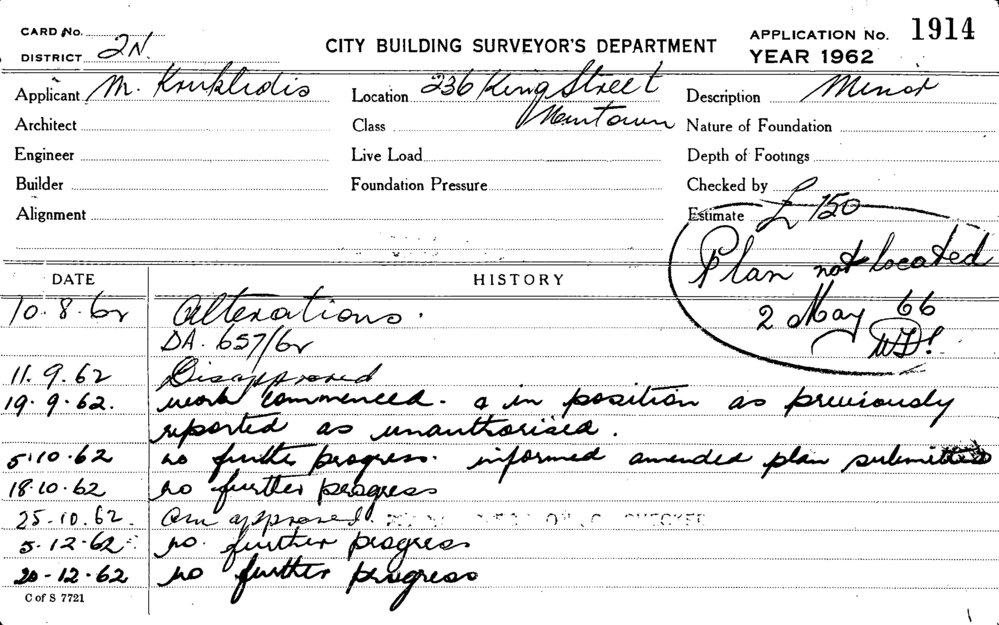 CARD No.
DISTRICT 2N.
CITY BUILDING SURVEYOR'S DEPARTMENT
APPLICATION No. 1914
YEAR 1962
Applicant M. Kruklidis
Location 236 King Street
Newtown
Description Minor
Architect
Class
Nature of Foundation
Engineer
Live Load
Depth of Footings
Builder
Foundation Pressure
Checked by
Alignment
Estimate £150
Plan not located
2 May 66
DATE
HISTORY
10.8.62 Alterations.
DA. 657/62
11.9.62 Disapproved
19.9.62. work commenced. & in position as previously
reported as unauthorised.
5.10.62 no further progress. informed amended plan submitted
18.10.62 no further progress
25.10.62. approved.
5.12.62 no. further progress
20-12-62 no further progress
C of S 7721